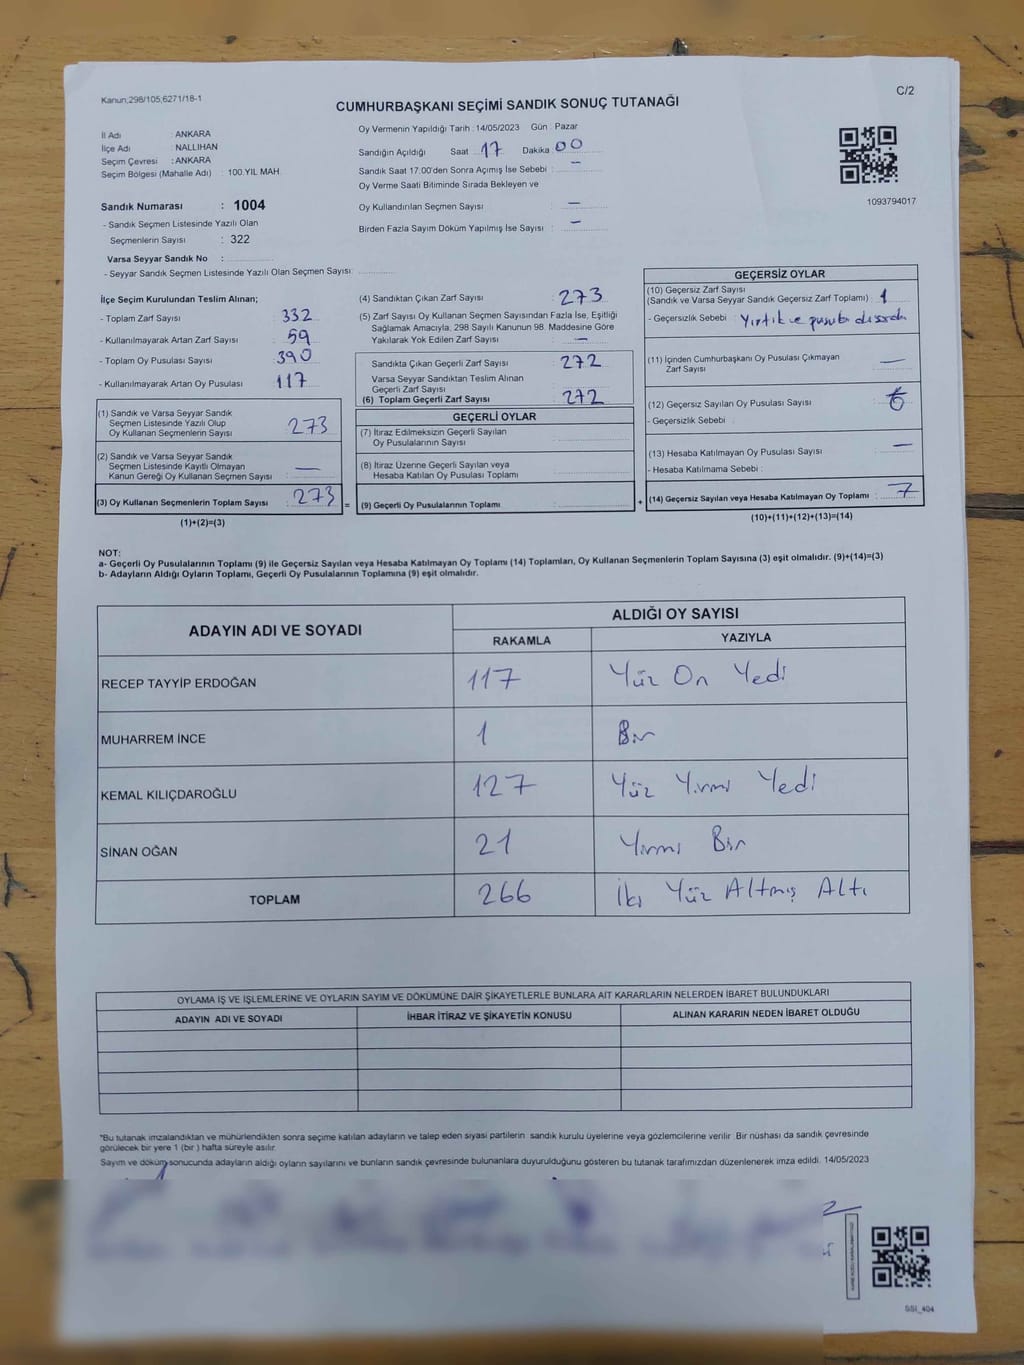 Kanun,298/105,6271/18-1
C/2
CUMHURBAŞKANI SEÇİMİ SANDIK SONUÇ TUTANAĞI
İl Adı : ANKARA
İlçe Adı : NALLIHAN
Seçim Çevresi : ANKARA
Seçim Bölgesi (Mahalle Adı) : 100.YIL MAH.
Sandık Numarası : 1004
- Sandık Seçmen Listesinde Yazılı Olan
Seçmenlerin Sayısı : 322
Varsa Seyyar Sandık No :
- Seyyar Sandık Seçmen Listesinde Yazılı Olan Seçmen Sayısı:
Oy Vermenin Yapıldığı Tarih : 14/05/2023 Gün : Pazar
Sandığın Açıldığı Saat : 17 Dakika : 00
Sandık Saat 17.00'den Sonra Açımış İse Sebebi : —
Oy Verme Saati Bitiminde Sırada Bekleyen ve
Oy Kullandırılan Seçmen Sayısı : —
Birden Fazla Sayım Döküm Yapılmış İse Sayısı : —
1093794017
İlçe Seçim Kurulundan Teslim Alınan;
- Toplam Zarf Sayısı : 332
- Kullanılmayarak Artan Zarf Sayısı : 59
- Toplam Oy Pusulası Sayısı : 390
- Kullanılmayarak Artan Oy Pusulası : 117
(1) Sandık ve Varsa Seyyar Sandık
Seçmen Listesinde Yazılı Olup
Oy Kullanan Seçmenlerin Sayısı : 273
(2) Sandık ve Varsa Seyyar Sandık
Seçmen Listesinde Kayıtlı Olmayan
Kanun Gereği Oy Kullanan Seçmen Sayısı : —
(3) Oy Kullanan Seçmenlerin Toplam Sayısı : 273
(1)+(2)=(3)
(4) Sandıktan Çıkan Zarf Sayısı : 273
(5) Zarf Sayısı Oy Kullanan Seçmen Sayısından Fazla İse, Eşitliği
Sağlamak Amacıyla, 298 Sayılı Kanunun 98. Maddesine Göre
Yakılarak Yok Edilen Zarf Sayısı : —
Sandıkta Çıkan Geçerli Zarf Sayısı : 272
Varsa Seyyar Sandıktan Teslim Alınan
Geçerli Zarf Sayısı :
(6) Toplam Geçerli Zarf Sayısı : 272
GEÇERLİ OYLAR
(7) İtiraz Edilmeksizin Geçerli Sayılan
Oy Pusulalarının Sayısı :
(8) İtiraz Üzerine Geçerli Sayılan veya
Hesaba Katılan Oy Pusulası Toplamı :
= (9) Geçerli Oy Pusulalarının Toplamı :
GEÇERSİZ OYLAR
(10) Geçersiz Zarf Sayısı
(Sandık ve Varsa Seyyar Sandık Geçersiz Zarf Toplamı) : 1
- Geçersizlik Sebebi : Yırtık ve pusula dışarda
(11) İçinden Cumhurbaşkanı Oy Pusulası Çıkmayan
Zarf Sayısı : —
(12) Geçersiz Sayılan Oy Pusulası Sayısı : 6
- Geçersizlik Sebebi :
(13) Hesaba Katılmayan Oy Pusulası Sayısı : —
- Hesaba Katılmama Sebebi :
+ (14) Geçersiz Sayılan veya Hesaba Katılmayan Oy Toplamı : 7
(10)+(11)+(12)+(13)=(14)
NOT:
a- Geçerli Oy Pusulalarının Toplamı (9) ile Geçersiz Sayılan veya Hesaba Katılmayan Oy Toplamı (14) Toplamları, Oy Kullanan Seçmenlerin Toplam Sayısına (3) eşit olmalıdır. (9)+(14)=(3)
b- Adayların Aldığı Oyların Toplamı, Geçerli Oy Pusulalarının Toplamına (9) eşit olmalıdır.
ADAYIN ADI VE SOYADI
ALDIĞI OY SAYISI
RAKAMLA YAZIYLA
RECEP TAYYİP ERDOĞAN 117 Yüz On Yedi
MUHARREM İNCE 1 Bir
KEMAL KILIÇDAROĞLU 127 Yüz Yirmi Yedi
SİNAN OĞAN 21 Yirmi Bir
TOPLAM 266 İki Yüz Altmış Altı
OYLAMA İŞ VE İŞLEMLERİNE VE OYLARIN SAYIM VE DÖKÜMÜNE DAİR ŞİKAYETLERLE BUNLARA AİT KARARLARIN NELERDEN İBARET BULUNDUKLARI
ADAYIN ADI VE SOYADI İHBAR İTİRAZ VE ŞİKAYETİN KONUSU ALINAN KARARIN NEDEN İBARET OLDUĞU
*Bu tutanak imzalandıktan ve mühürlendikten sonra seçime katılan adayların ve talep eden siyasi partilerin sandık kurulu üyelerine veya gözlemcilerine verilir. Bir nüshası da sandık çevresinde
görülecek bir yere 1 (bir ) hafta süreyle asılır.
Sayım ve döküm sonucunda adayların aldığı oyların sayılarını ve bunların sandık çevresinde bulunanlara duyurulduğunu gösteren bu tutanak tarafımızdan düzenlenerek imza edildi. 14/05/2023
SSİ_404